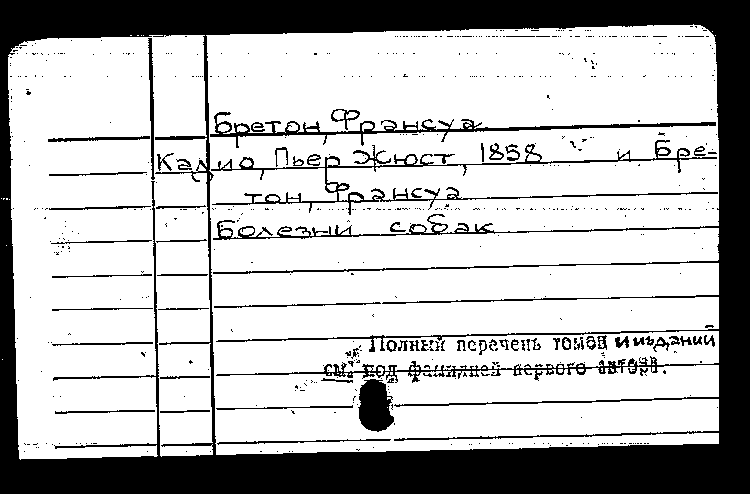 Бретон, Франсуа
Кадио, Пьер Жюст, 1858 и Бре-
тон, Франсуа
Болезни собак
Полный перечень томов и изданий
см. под фамилией первого автора.